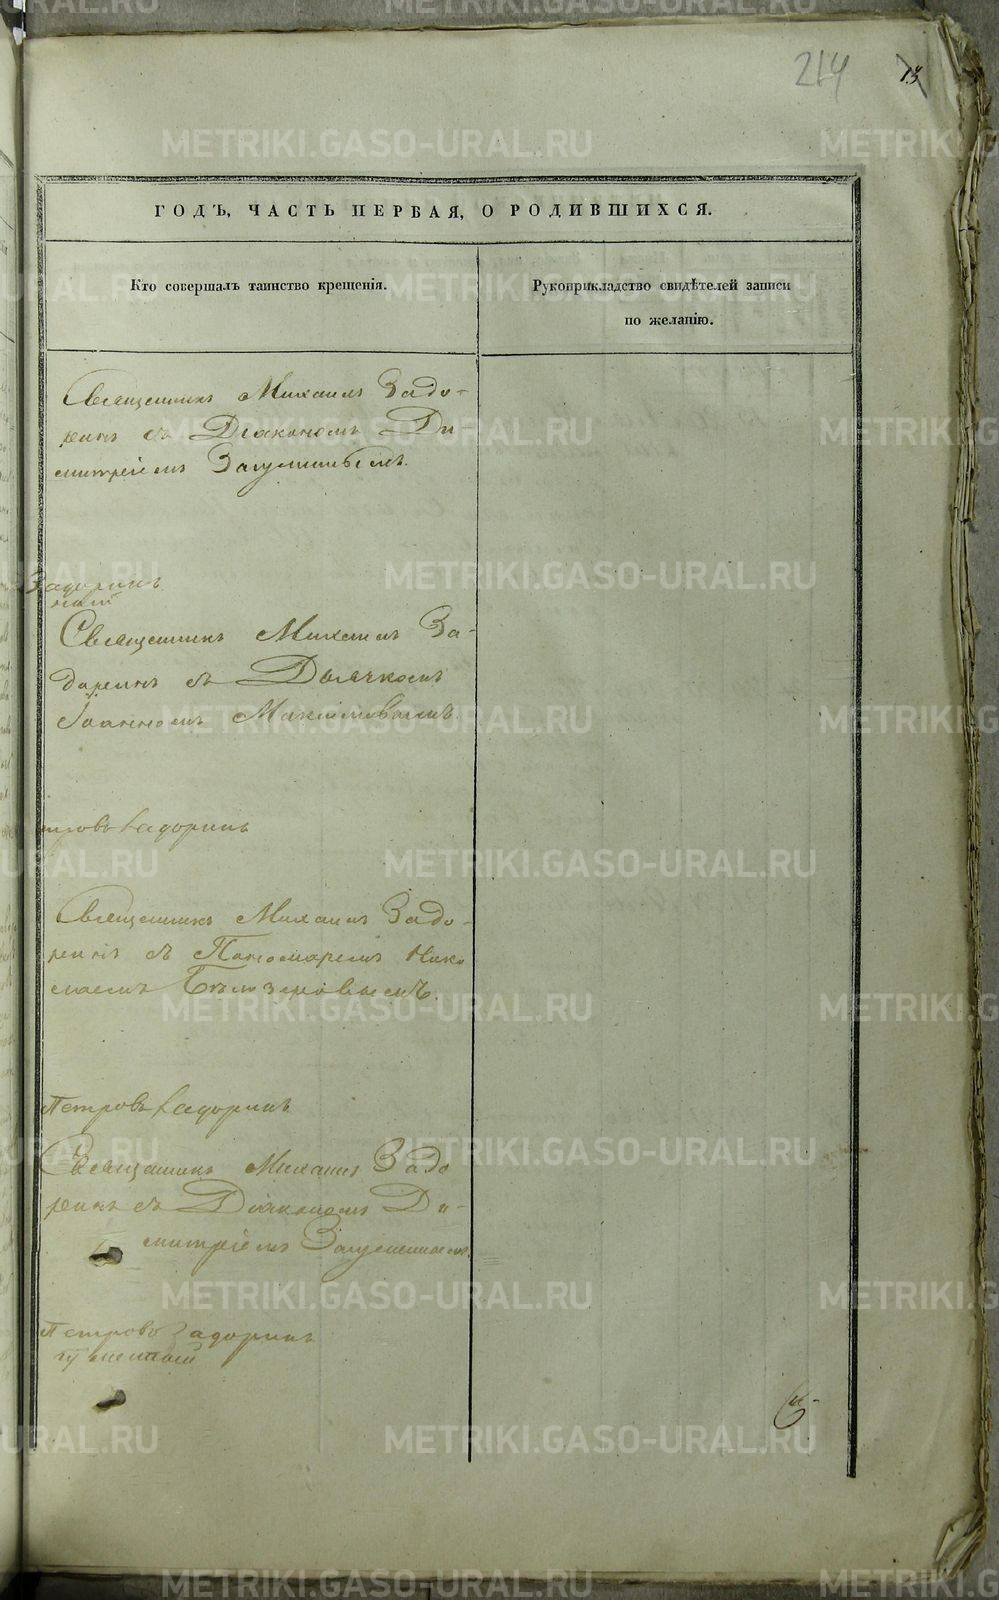 214
13
ГОДЪ, ЧАСТЬ ПЕРВАЯ, О РОДИВШИХСЯ.
Кто совершалъ таинство крещенія.
Рукоприкладство свидѣтелей записи
по желанію.
Священникъ Михаилъ Задо-
ринъ съ Діакономъ Ди-
митріемъ
Задоринъ
Священникъ Михаилъ За-
доринъ съ Дьячкомъ
Іоанномъ Максимовымъ.
тровъ Задоринъ
Священникъ Михаилъ Задо-
ринъ съ Пономаремъ Нико
лаемъ Бѣлозеровымъ.
Петровъ Задоринъ
Священникъ Михаилъ Задо
ринъ съ Діакономъ Ди-
митріемъ
Петровъ Задоринъ
METRIKI.GASO-URAL.RU